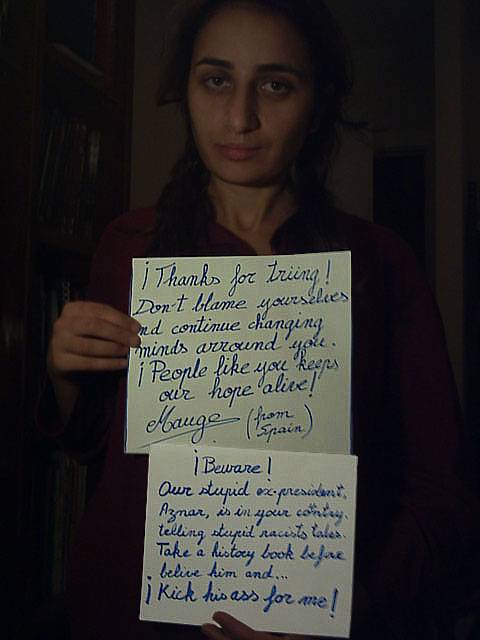 ¡Thanks for triing!
Don't blame yourselves
nd continue changing
minds arround you.
¡People like you keeps
our hope alive!
Mauge (from
Spain)
¡Beware!
Our stupid ex-president,
Aznar, is in your
telling stupid racists tales.
Take a history book before
belive him and...
¡Kick his ass for me!